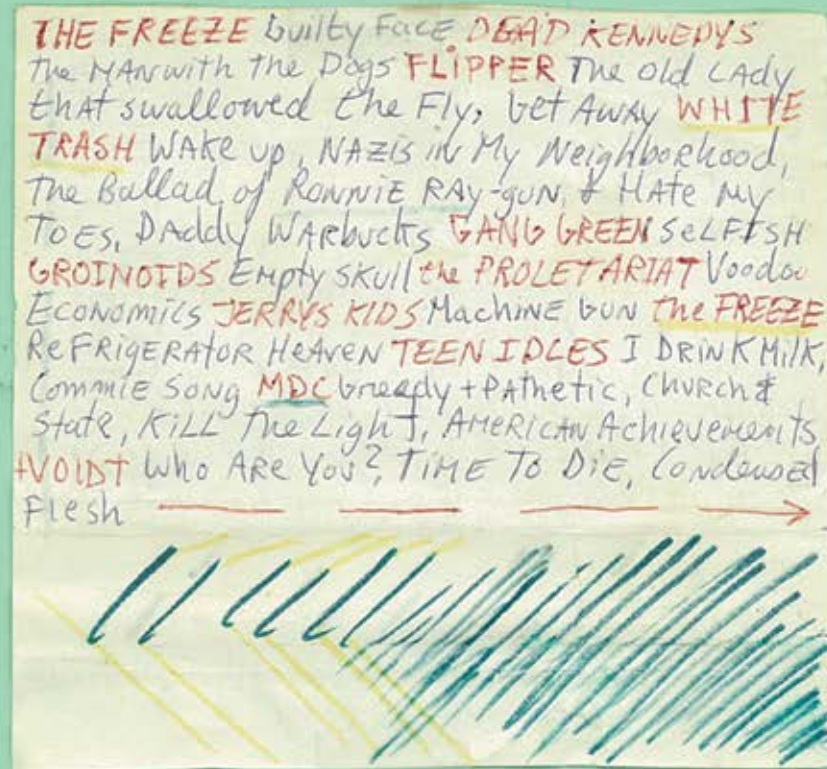 THE FREEZE Guilty Face DEAD KENNEDYS
the MAN with the Dogs FLIPPER The old LADY
that swallowed the Fly, Get AWAY WHITE
TRASH WAKE up, NAZIS in My Neighborhood,
The Ballad of RONNIE RAY-GUN, I HATE MY
TOES, DADDY WARBUCKS GANG GREEN SELFISH
GROINOIDS Empty SKULL the PROLETARIAT Voodoo
ECONOMICS JERRYS KIDS MACHINE GUN the FREEZE
REFRIGERATOR HEAVEN TEEN IDLES I DRINK MILK,
Commie SONG MDC Greedy + PAthetic, CHURCH &
State, KILL The LIGHT, AMERICAN Achievements
+VOIDT Who ARE You?, TIME TO DIE, Condensed
Flesh